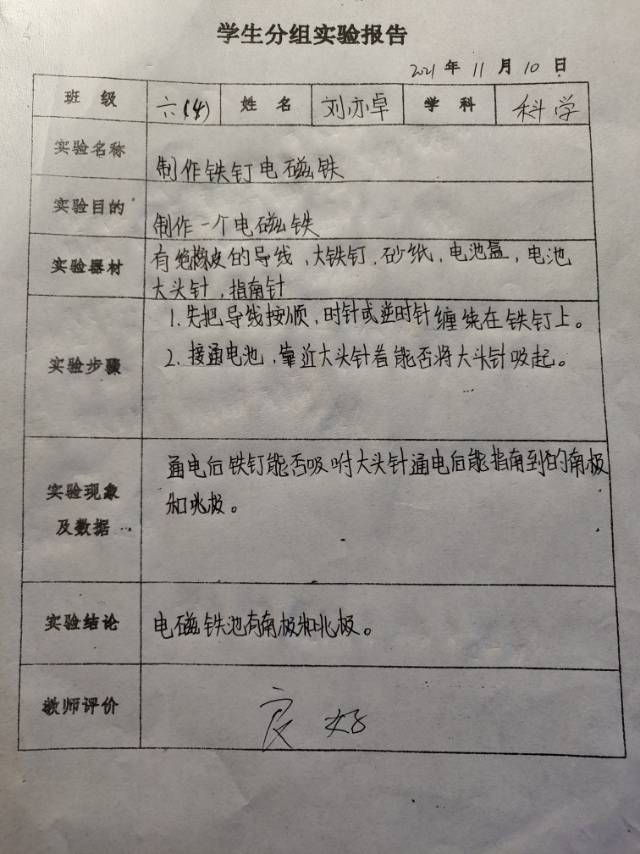 学生分组实验报告
2021 年 11 月 10 日
班 级 六(4) 姓 名 刘亦卓 学 科 科学
实验名称 制作铁钉电磁铁
实验目的 制作一个电磁铁
实验器材
有绝橡皮的导线、大铁钉、砂纸，电池盒，电池
大头针，指南针
实验步骤
1. 先把导线按顺，时针或逆时针缠绕在铁钉上。
2. 接通电池，靠近大头针看能否将大头针吸起。
实验现象
及数据
通电后铁钉能否吸咐大头针通电后能指南到的南极
和北极。
实验结论 电磁铁池有南极和北极。
教师评价 良好